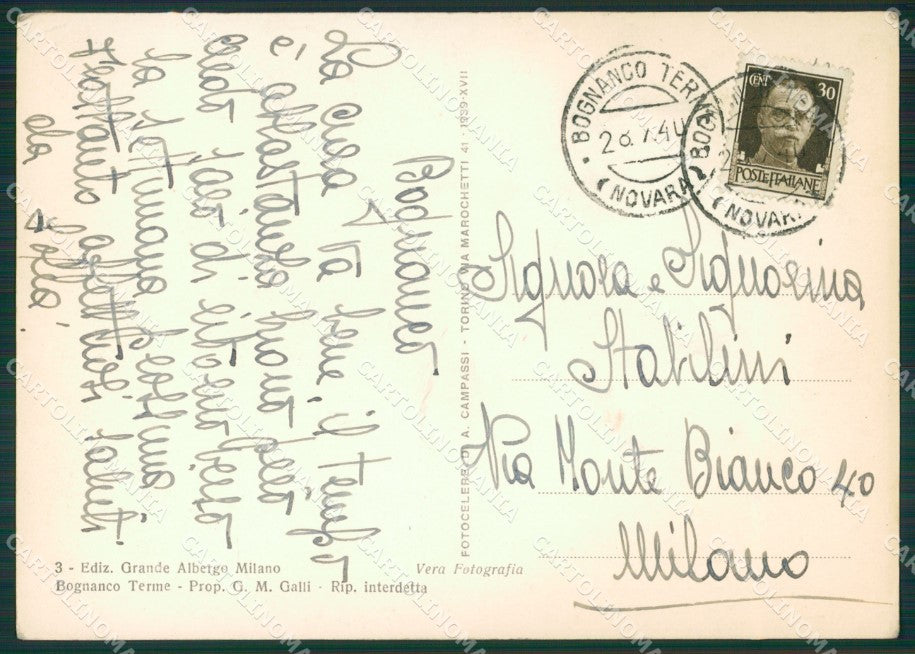 Bognanco
La cura va bene, il tempo
è abbastanza buono però
credo sarò di ritorno verso
la settimana prossima
Frattanto affettuosi saluti
da
3 - Ediz. Grande Albergo Milano
Bognanco Terme - Prop. G. M. Galli - Rip. interdetta
Vera Fotografia
FOTOCELERE DI A. CAMPASSI - TORINO VIA MAROCHETTI 41 - 1939-XVII
BOGNANCO TERME
28.7.40
(NOVARA)
BOGN
(NOVAR
CENT 30
POSTE ITALIANE
Signora e Signorina
Stabilini
Via Monte Bianco 40
Milano
CARTOLINOMANIA